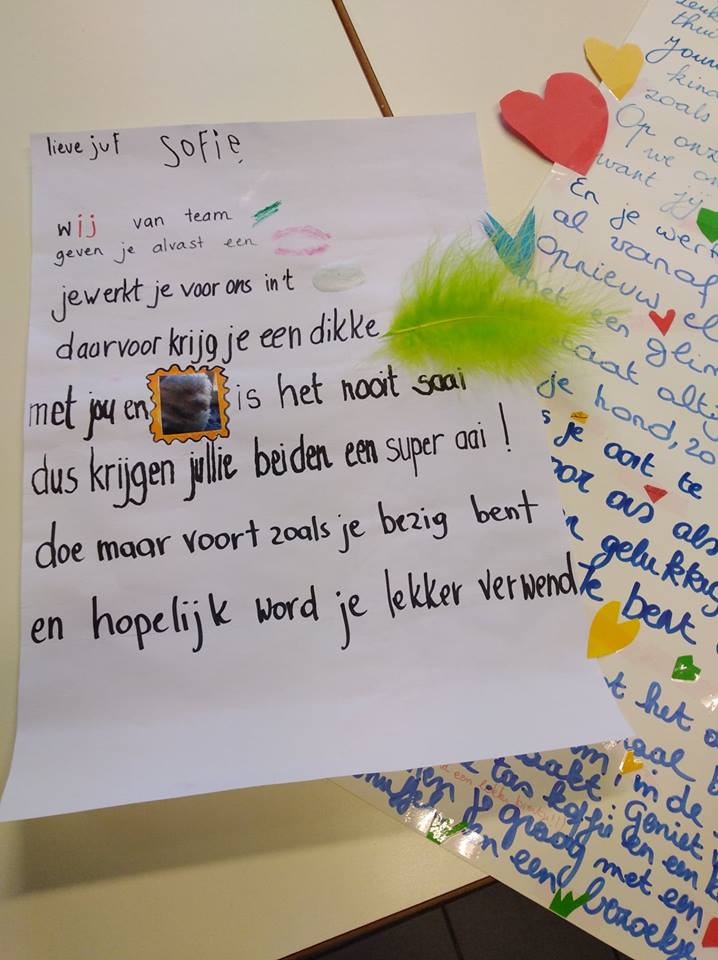 lieve juf Sofie
wij van team
geven je alvast een
je werkt je voor ons in't
daarvoor krijg je een dikke
met jou en is het nooit saai
dus krijgen jullie beiden een super aai!
doe maar voort zoals je bezig bent
en hopelijk word je lekker verwend
thui
jouw
kind
zoals
Op onz
Op we on
want jij
En je werk
al vanaf
Opnieuw el
met een glim
staat alty
je hond, zo
s je oort te
oor ons als
gelukkig
k bent
t het
aal
in de
aakt. Geniet
tas koffie en een
je graag met een
een bezoekje